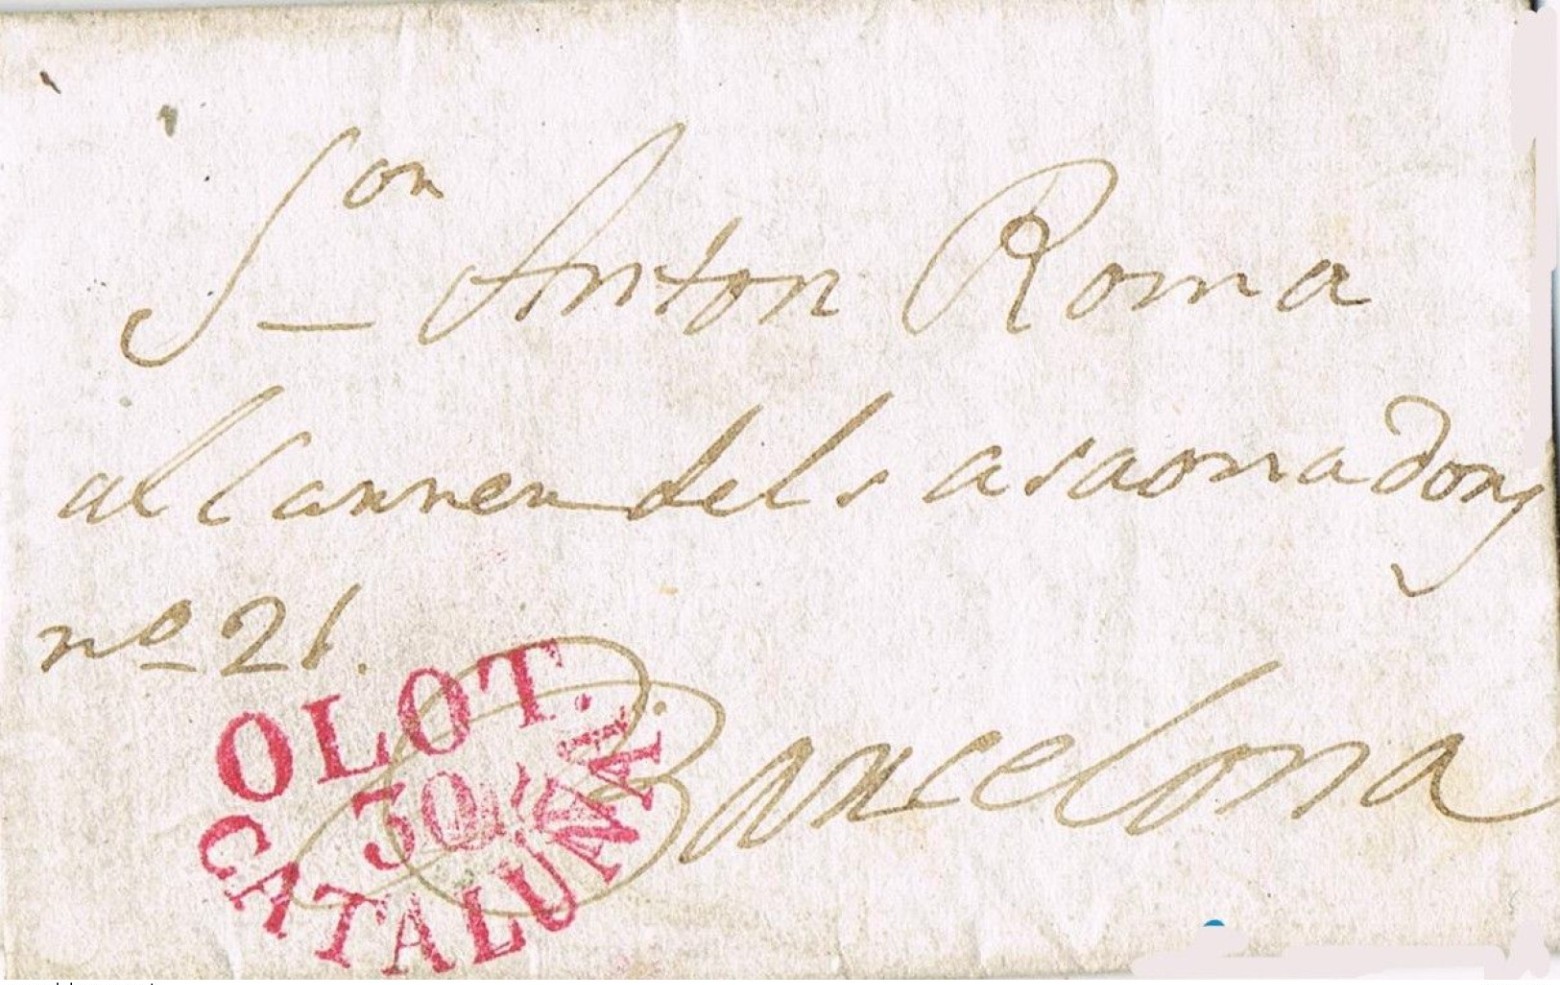 Sor Anton Roma
al Carrer dels asaonadors
nº 21.
Barcelona
OLOT.
30
CATALUÑA.